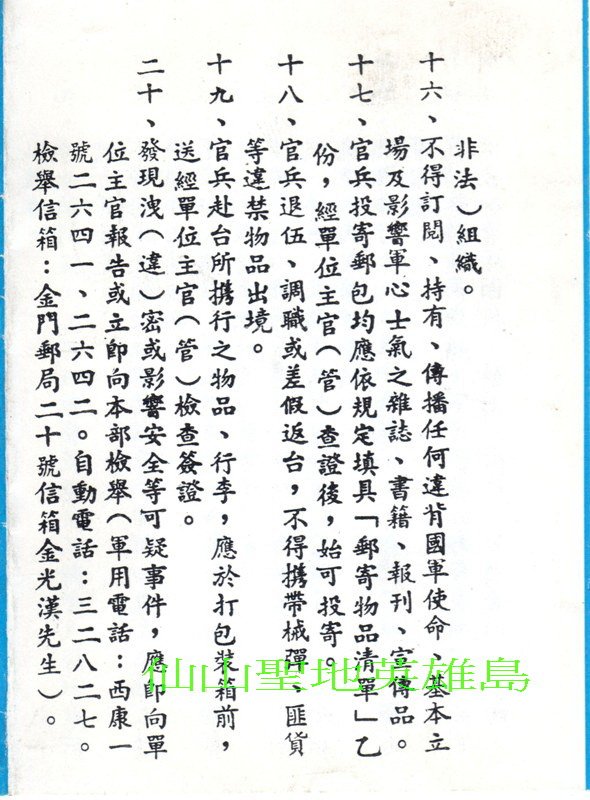 非法）組織。
十六、不得訂閱、持有、傳播任何違背國軍使命、基本立
場及影響軍心士氣之雜誌、書籍、報刊、宣傳品。
十七、官兵投寄郵包均應依規定填具「郵寄物品清單」乙
份，經單位主官（管）查證後，始可投寄。
十八、官兵退伍、調職或差假返台，不得携帶械彈、匪貨
等違禁物品出境。
十九、官兵赴台所携行之物品、行李，應於打包裝箱前，
送經單位主官（管）檢查簽證。
二十、發現洩（違）密或影響安全等可疑事件，應卽向單
位主官報告或立卽向本部檢舉（軍用電話：西康一
號二六四一、二六四二。自動電話：三二八二七。
檢舉信箱：金門郵局二十號信箱金光漢先生）。
仙山聖地英雄島